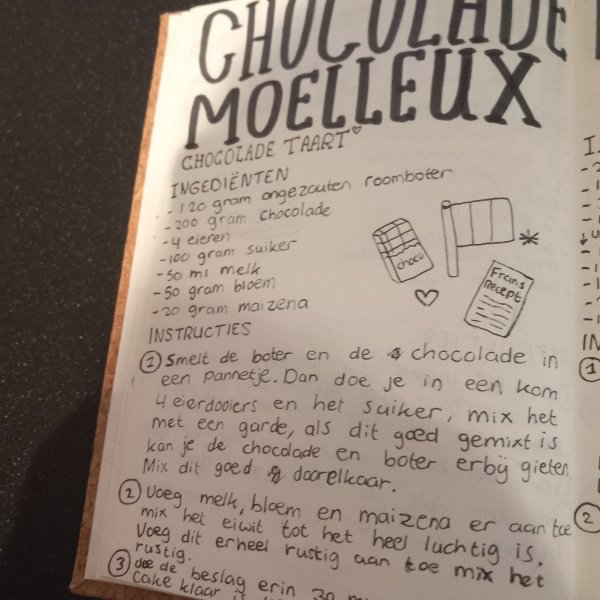 CHOCOLADE
MOELLEUX
CHOCOLADE TAART
INGEDIËNTEN
- 120 gram ongezouten roomboter
- 200 gram chocolade
- 4 eieren
- 100 gram suiker
- 50 ml melk
- 50 gram bloem
- 20 gram maizena
choco
Frans
Recept
INSTRUCTIES
1 Smelt de boter en de chocolade in
een pannetje. Dan doe je in een kom
4 eierdooiers en het suiker, mix het
met een garde, als dit goed gemixt is
kan je de chocolade en boter erbij gieten
Mix dit goed doorelkaar.
2 Voeg melk, bloem en maizena er aan toe
mix het eiwit tot het heel luchtig is,
Voeg dit erheel rustig aan toe mix het
rustig.
3 doe de beslag erin 30
Cake klaar is
IN
1
2